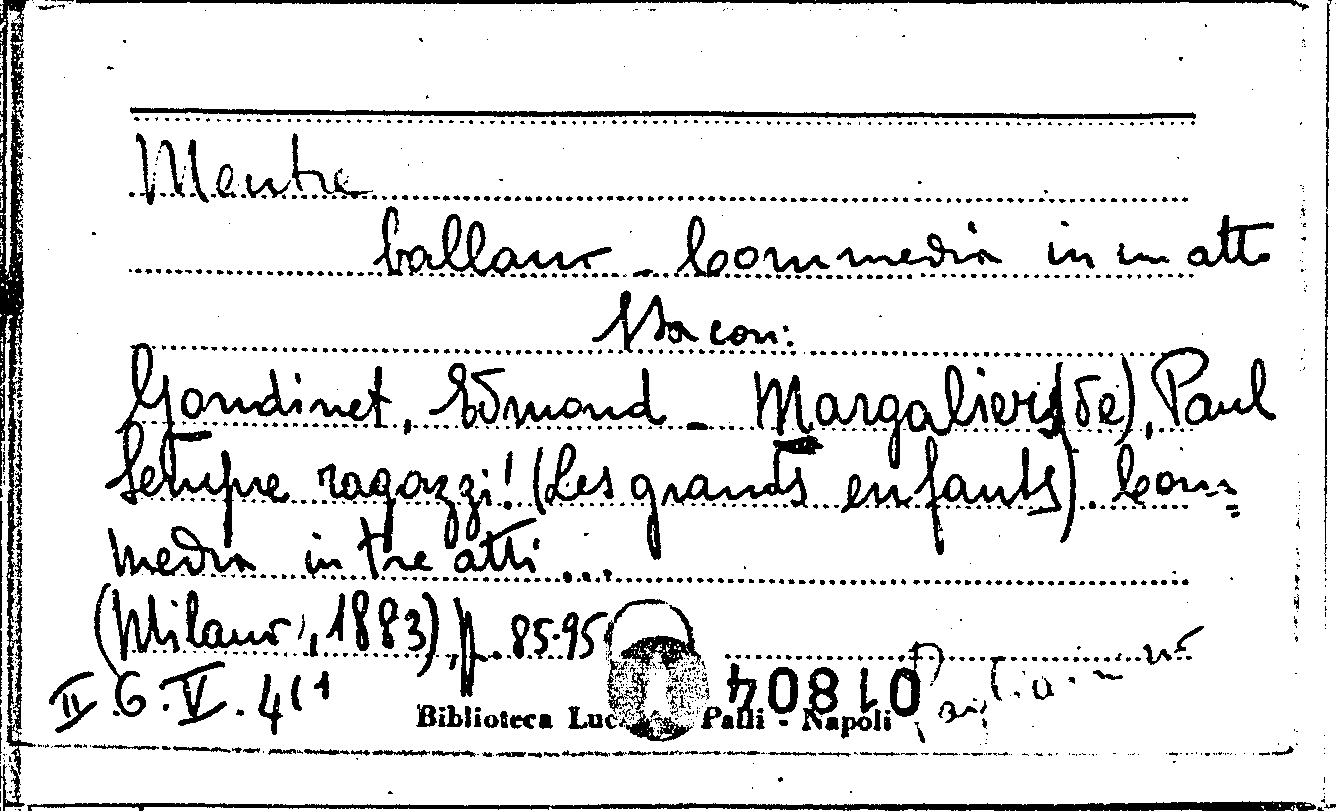 Mentre
ballano - Commedia in un atto
Sta con:
Gondinet, Edmond - Margaliers (de), Paul
Sempre ragazzi! (Les grands enfants). Com=
media in tre atti ...
(Milano, 1883), p. 85-95
II.G.V.4(1
Biblioteca Luc Palli - Napoli
01804